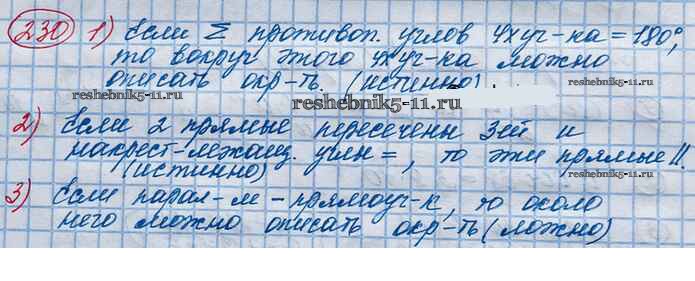 230 1) Если Σ противоп. углов 4хуг-ка = 180°,
то вокруг этого 4хуг-ка можно
описать окр-ть. (истинно).
reshebnik5-11.ru
reshebnik5-11.ru
reshebnik5-11.ru
2) Если 2 прямые пересечены 3ей и
накрест-лежащ. углы =, то эти прямые ||.
(истинно)
3) Если парал-м - прямоуг-к, то около
него можно описать окр-ть (ложно)